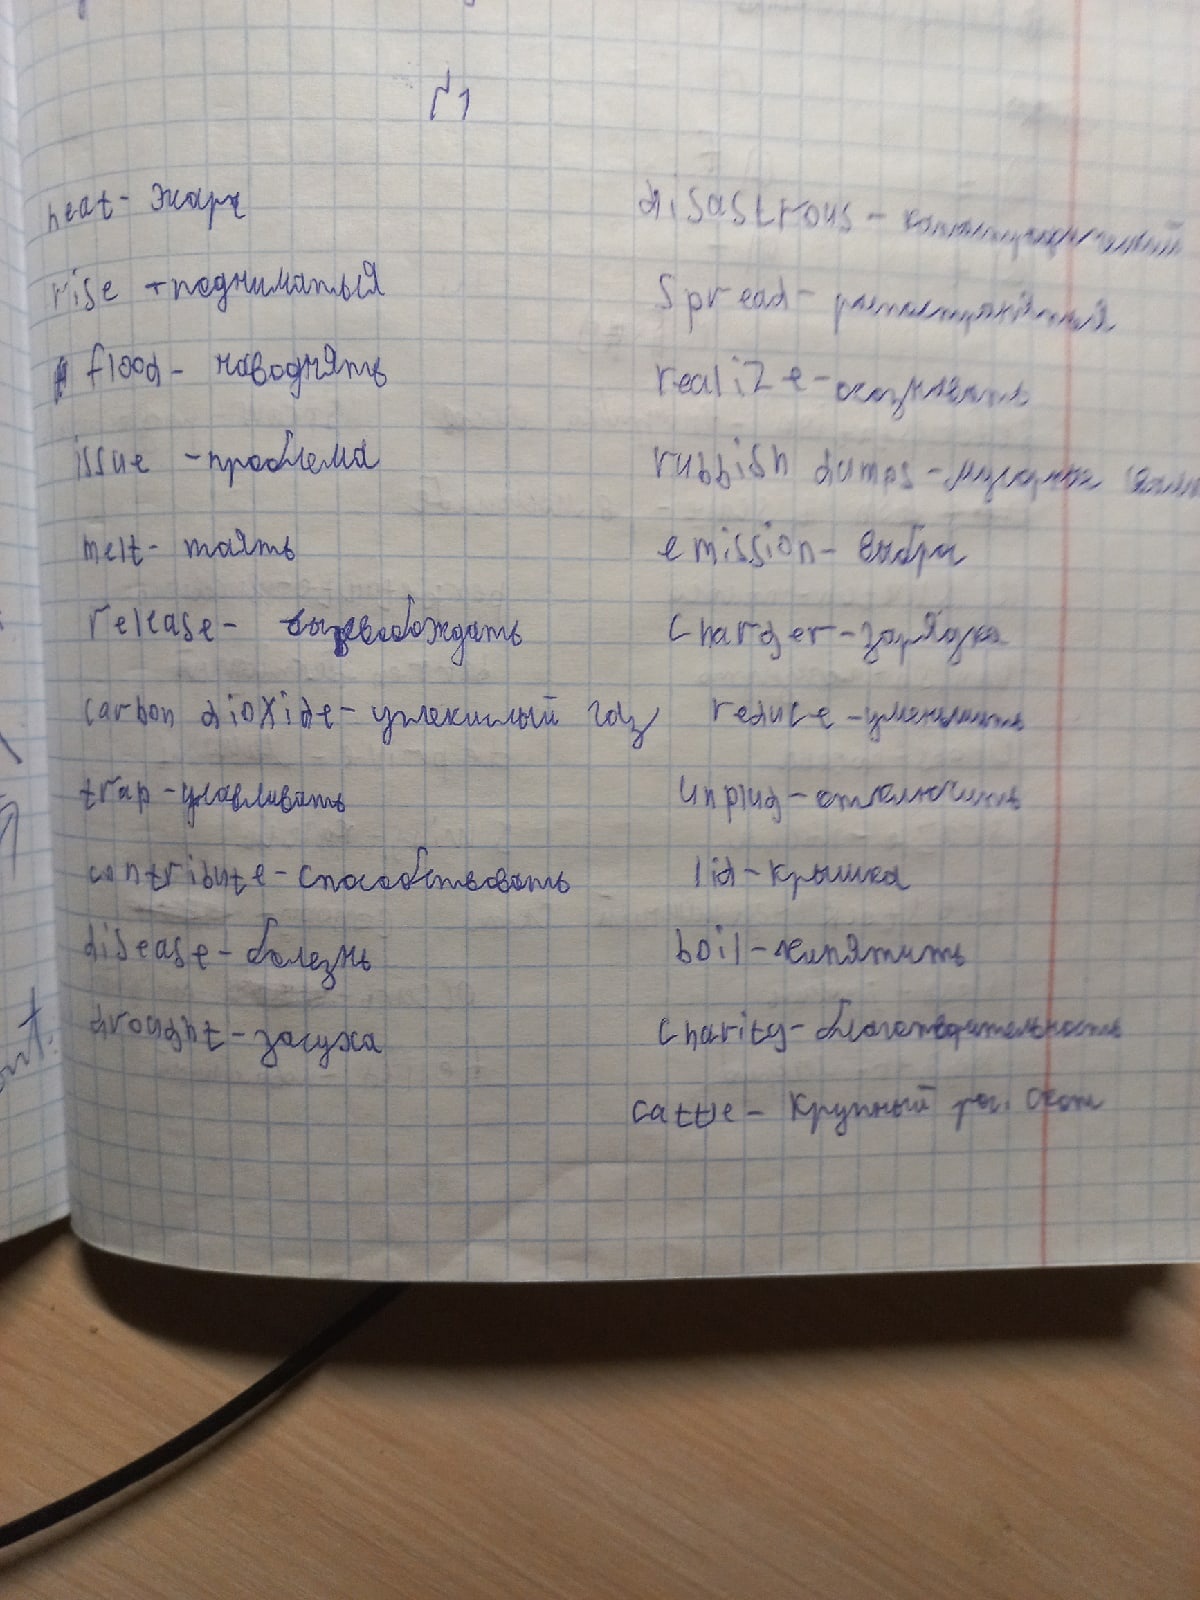 №1
heat - жара
rise - подниматься
flood - наводнять
issue - проблема
melt - таять
release - высвобождать
carbon dioxide - углекислый газ
trap - улавливать
contribute - способствовать
disease - болезнь
drought - засуха
disastrous - катастрофический
spread - распространяться
realize - осознавать
rubbish dumps - мусорные
emission - выброс
charger - зарядка
reduce - уменьшить
unplug - отключить
lid - крышка
boil - кипятить
charity - благотворительность
cattle - крупный рог. скот